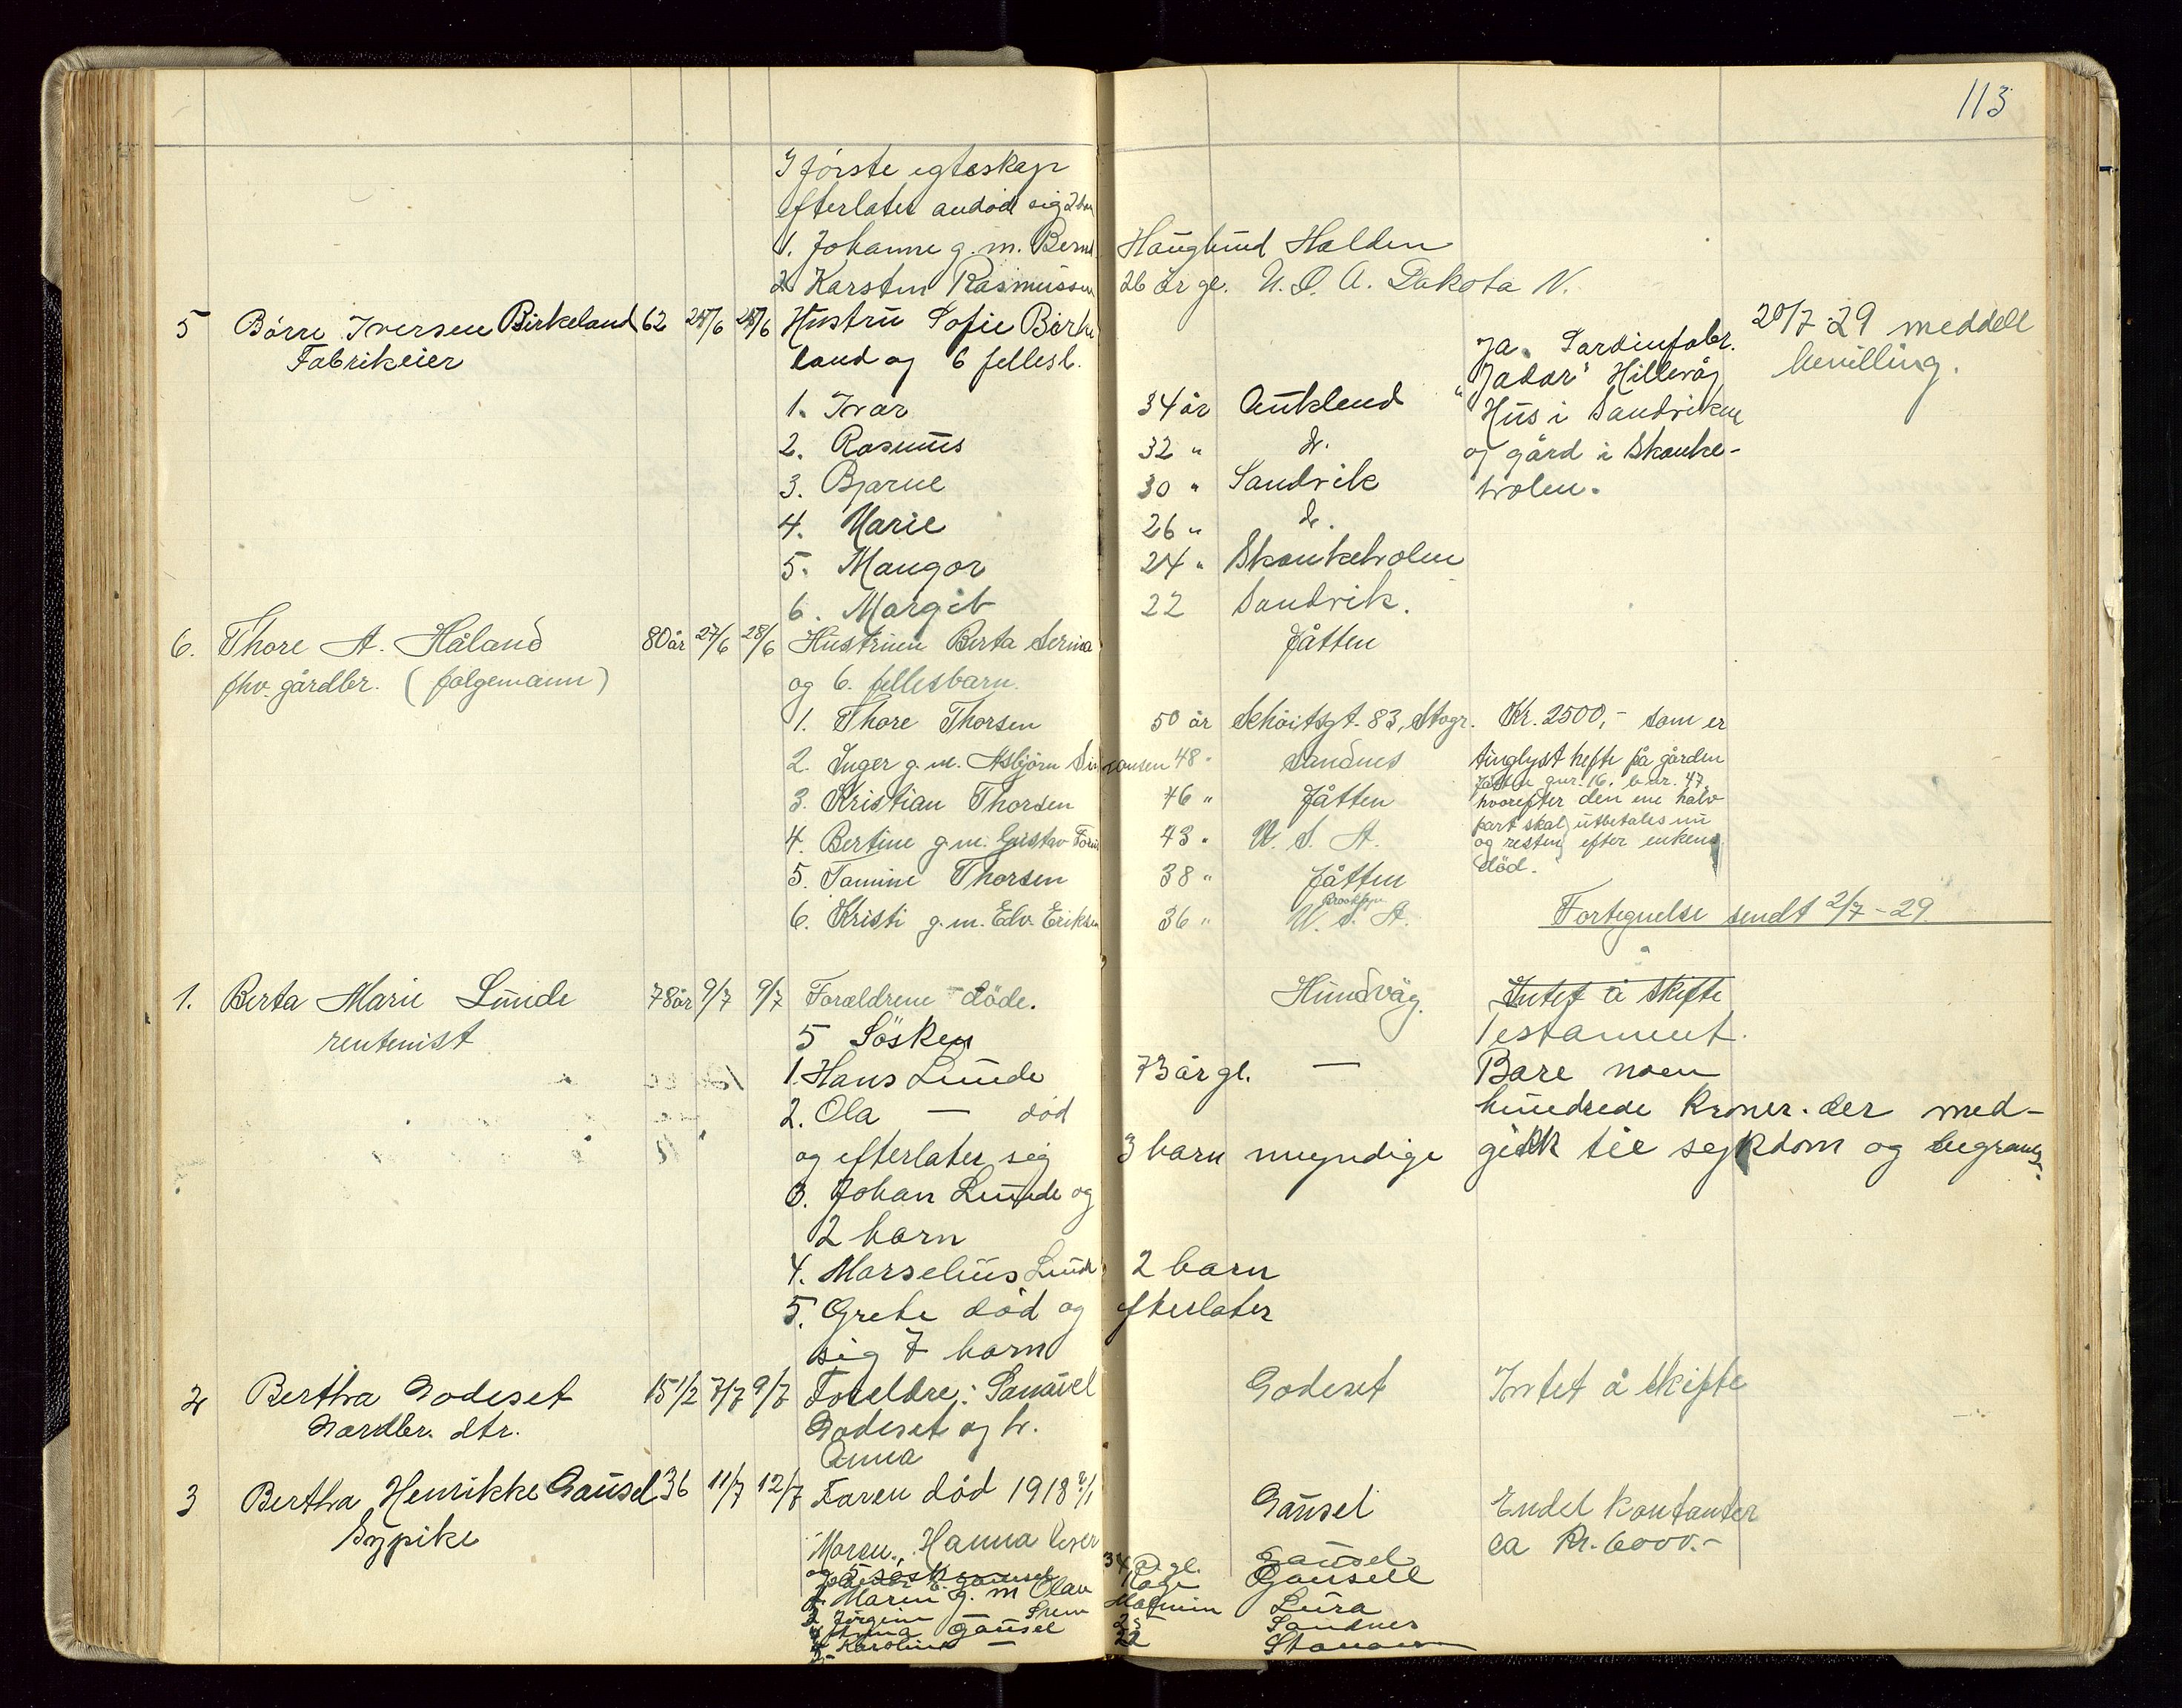 113
I første egteskap
efterlater avdøde sig 2 barn
1. Johanne g. m. Bernt Hauglund Halden
2. Karsten Rasmussen 26 år gl. U. S. A. Dakota N.
5 Børre Iversen Birkeland 62 24/6 Hustru Sofie Birke 20/7 29 meddelt
Fabrikeier land og 6 fellesb. Ja. Sardinfabr. bevilling.
"Jadar" Hillevåg
1. Ivar 34 år Auklend Hus i Sandviken
2. Rasmus 32 " do. og gård i Skanke-
3. Bjarne 30 " Sandvik holen.
4. Marie 26 " do.
5. Mangor 24 " Skankeholen
6. Margit 22 Sandvik.
6. Thore A. Håland 80 år 27/6 28/6 Hustruen Berta Serina Jåtten
fhv. gårdbr. (følgemann) og 6. fellesbarn.
1. Thore Thorsen 50 år Schöitsgt. 83, Stvgr. Kr. 2500,- som er
2. Inger g. m. Asbjørn 48 " Sandnes tinglyst hefte på gården
Jåtten gnr. 16, bnr. 47,
3. Kristian Thorsen 46 " Jåtten hvorefter den ene halv
4. Bertine g. m. Gustav 43 " U. S. A. part skal utbetales nu
og resten efter enkens
5. Tamine Thorsen 38 " Jåtten død.
6. Kristi g. m. Edv. Eriksen 36 " Brooklyn U. S. A. Fortegnelse sendt 2/7-29
1. Berta Marie Lunde 78 år 9/7 9/7 Forældrene døde. Hundvåg. Intet å skifte
rentenist 5 Søsken Testament.
1. Hans Lunde 73 år gl. — Bare noen
2. Ola — død hundrede kroner. der med-
og efterlater sig 3 barn myndige gikk til sykdom og begravels
3. Johan Lunde og
2 barn
4. Marselius Lunde 2 barn
5. Grete død og efterlater
sig 7 barn
2 Bertha Godeset 15 1/2 7/7 9/7 Foreldre: Samuel Godeset Intet å skifte
Gardbr. dtr. Godeset og h.
Anna
3 Bertha Henrikke Gausel 36 11/7 12/7 Faren død 1918 Gausel Endel kontanter
Sypike Moren, Hanna lever ca Kr. 6000.-
og 5 søsken 34 år gl. Gausel
Gausel Gausel
Maren g. m Olav Lura
Jørgine Sandnes
Anna Gausel 25
Karoline — 22